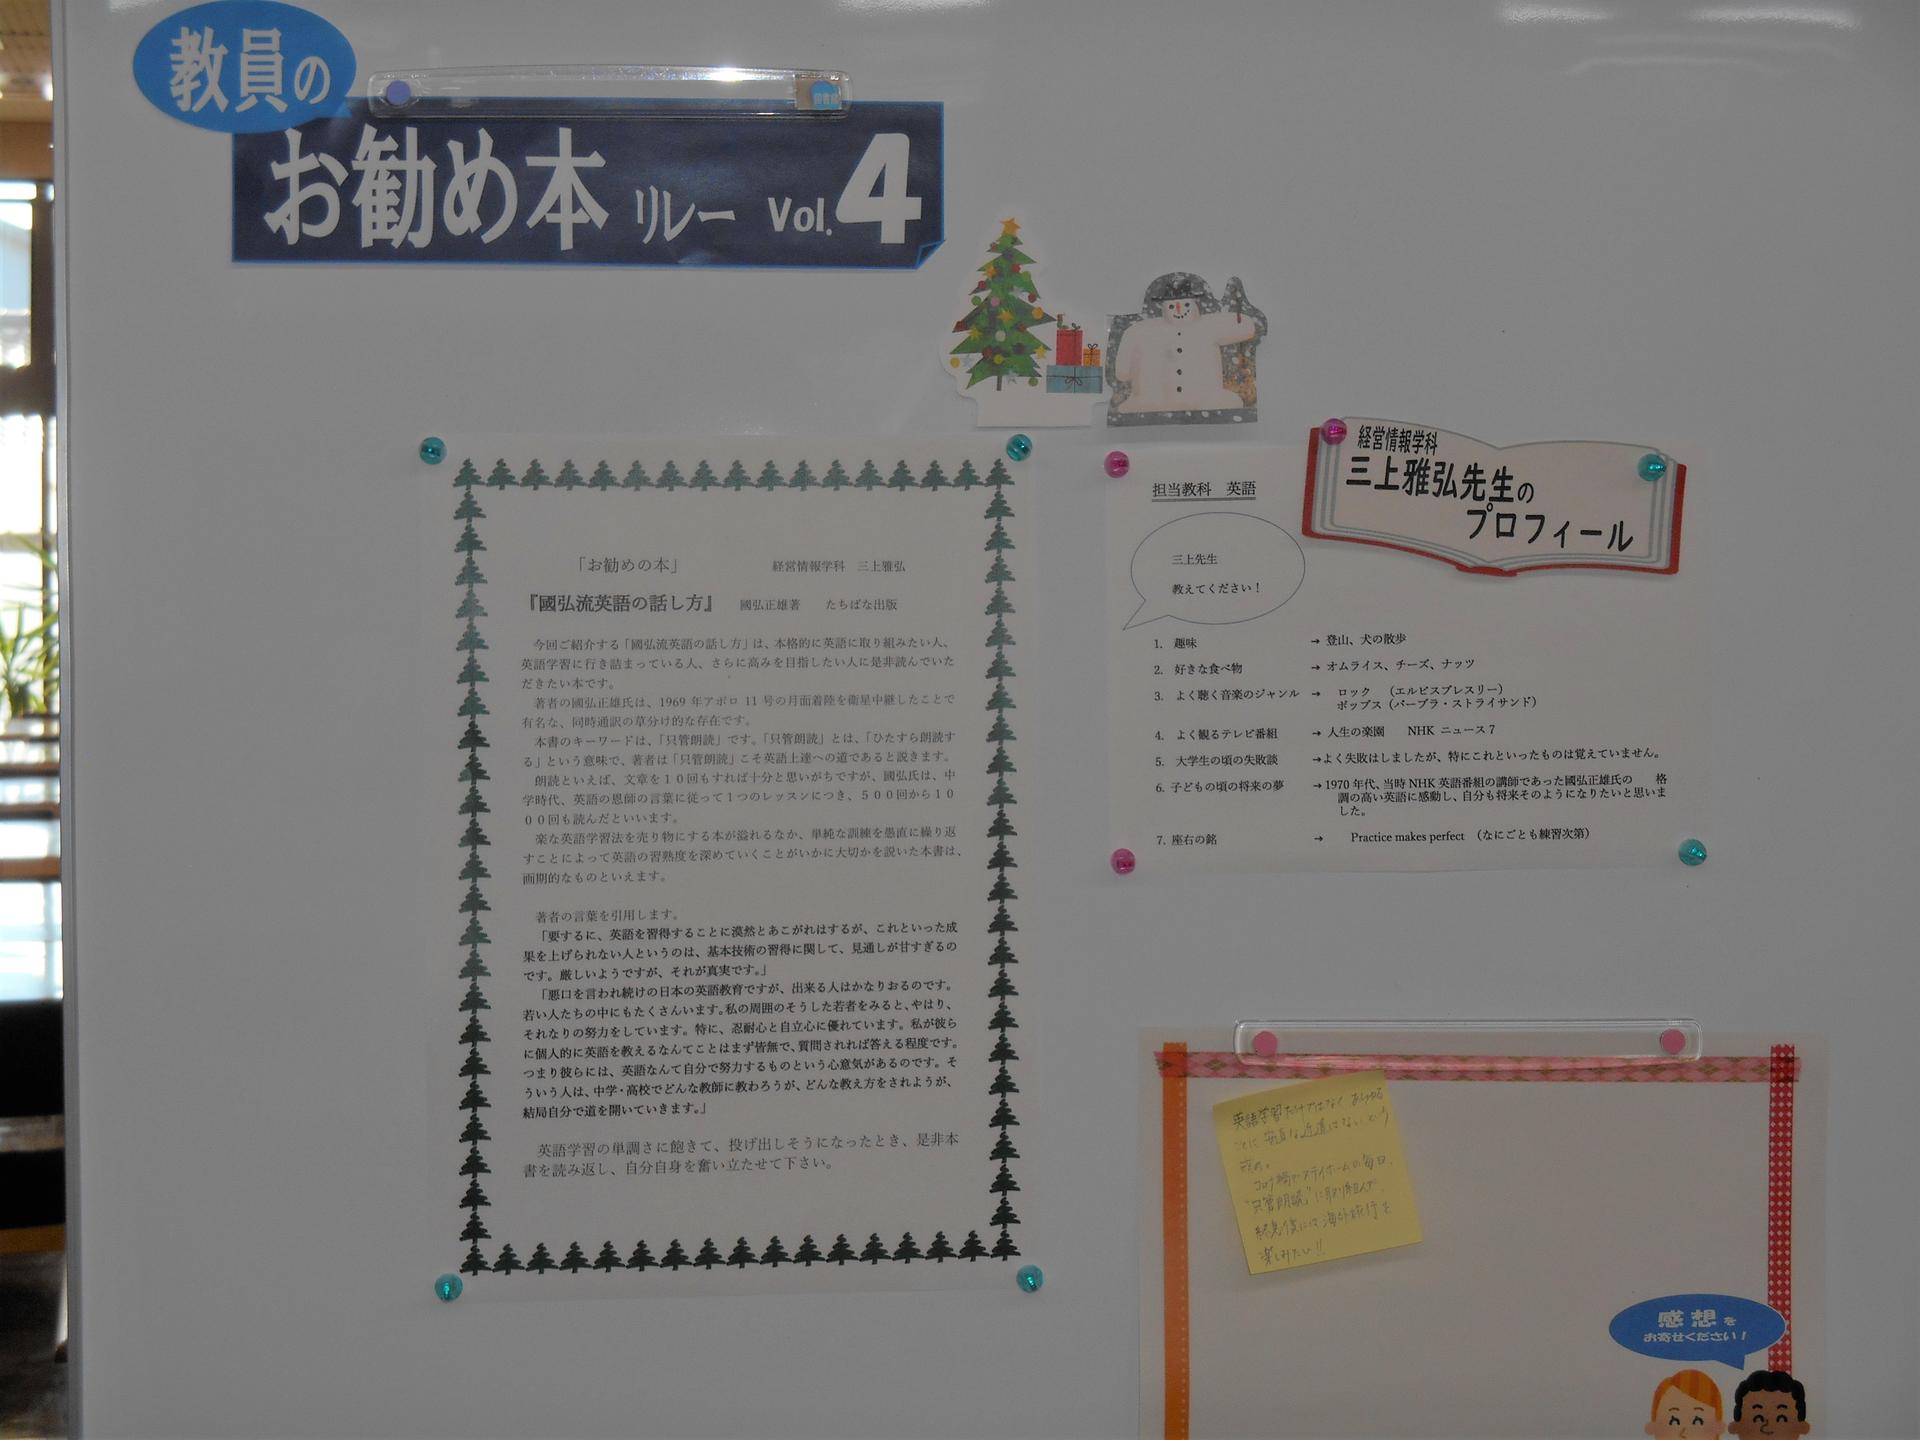 教員の
お勧め本 リレー Vol.4
図書館
「お勧めの本」 経営情報学科 三上雅弘
『國弘流英語の話し方』 國弘正雄著 たちばな出版
今回ご紹介する「國弘流英語の話し方」は、本格的に英語に取り組みたい人、
英語学習に行き詰まっている人、さらに高みを目指したい人に是非読んでいた
だきたい本です。
著者の國弘正雄氏は、1969 年アポロ 11 号の月面着陸を衛星中継したことで
有名な、同時通訳の草分け的な存在です。
本書のキーワードは、「只管朗読」です。「只管朗読」とは、「ひたすら朗読す
る」という意味で、著者は「只管朗読」こそ英語上達への道であると説きます。
朗読といえば、文章を１０回もすれば十分と思いがちですが、國弘氏は、中
学時代、英語の恩師の言葉に従って１つのレッスンにつき、５００回から１０
００回も読んだといいます。
楽な英語学習法を売り物にする本が溢れるなか、単純な訓練を愚直に繰り返
すことによって英語の習熟度を深めていくことがいかに大切かを説いた本書は、
画期的なものといえます。
著者の言葉を引用します。
「要するに、英語を習得することに漠然とあこがれはするが、これといった成
果を上げられない人というのは、基本技術の習得に関して、見通しが甘すぎるの
です。厳しいようですが、それが真実です。」
「悪口を言われ続けの日本の英語教育ですが、出来る人はかなりおるのです。
若い人たちの中にもたくさんいます。私の周囲のそうした若者をみると、やはり、
それなりの努力をしています。特に、忍耐心と自立心に優れています。私が彼ら
に個人的に英語を教えるなんてことはまず皆無で、質問されれば答える程度です。
つまり彼らには、英語なんて自分で努力するものという心意気があるのです。そ
ういう人は、中学・高校でどんな教師に教わろうが、どんな教え方をされようが、
結局自分で道を開いていきます。」
英語学習の単調さに飽きて、投げ出しそうになったとき、是非本
書を読み返し、自分自身を奮い立たせて下さい。
経営情報学科
三上雅弘先生の
プロフィール
担当教科 英語
三上先生
教えてください！
1. 趣味 → 登山、犬の散歩
2. 好きな食べ物 → オムライス、チーズ、ナッツ
3. よく聴く音楽のジャンル → ロック （エルビスプレスリー）
ポップス（バーブラ・ストライサンド）
4. よく観るテレビ番組 → 人生の楽園 NHK ニュース７
5. 大学生の頃の失敗談 →よく失敗はしましたが、特にこれといったものは覚えていません。
6. 子どもの頃の将来の夢 →1970 年代、当時 NHK 英語番組の講師であった國弘正雄氏の 格
調の高い英語に感動し、自分も将来そのようになりたいと思いま
した。
7. 座右の銘 → Practice makes perfect （なにごとも練習次第）
英語学習だけではなく あらゆる
ことに 安直な近道はない という
戒め。
コロナ禍でステイホームの毎日、
"只管朗読"に取り組んで
終息後には海外旅行を
楽しみたい!!
感想を
お寄せください！